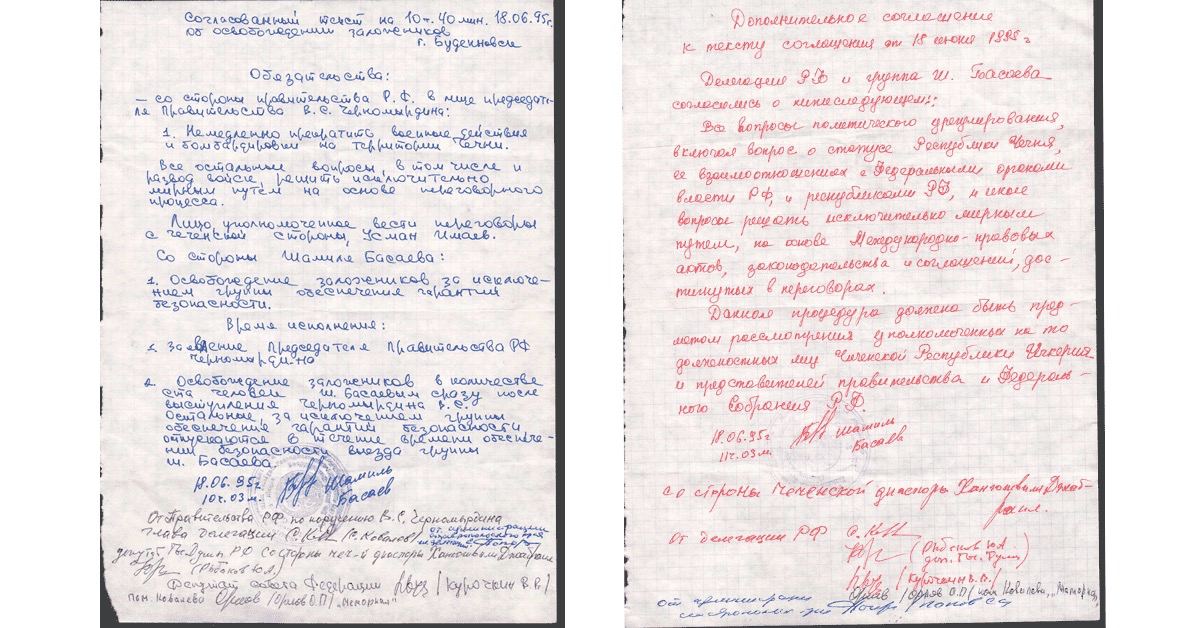 Согласованный текст на 10ч. 40 мин. 18.06.95г.
об освобождении заложников
г. Буденновск
Обязательства:
– со стороны правительства Р.Ф. в лице председате-
ля Правительства В.С. Черномырдина:
1. Немедленно прекратить военные действия
и бомбардировки на территории Чечни.
Все остальные вопросы, в том числе и
развод войск, решить исключительно
мирным путём на основе переговорного
процесса.
Лицо уполномоченное вести переговоры
с чеченской стороны, Усман Имаев.
Со стороны Шамиля Басаева:
1. Освобождение заложников за исключе-
нием группы обеспечения гарантия
безопасности.
Время исполнения:
1. Заявление председателя Правительства РФ
Черномырдина
2. Освобождение заложников в количестве
ста человек Ш. Басаевым сразу после
выступления Черномырдина В.С.
Остальные, за исключением группы
обеспечения гарантий безопасности
отпускаются в течение времени обеспече-
ния безопасности выезда группы
Ш. Басаева
18.06.95г. Шамиль
10ч. 03 м. Басаев
От Правительства РФ по поручению В.С. Черномырдина
глава делегации (С. Ковалев) от администрации
депутат Гос. Думы РФ Со стороны чеч-й диаспоры
(Рыбаков Ю.А.)
Депутат совета Федерации /Курочкин В.В./
Пом. Ковалева Орлов /Орлов О.П/ "Мемориал"
Дополнительное соглашение
к тексту соглашения от 18 июня 1995 г
Делегация РФ и группа Ш. Басаева
согласились о нижеследующем:
Все вопросы политического урегулирования,
включая вопрос о статусе Республики Чечня,
ее взаимоотношениях с Федеральными органами
власти РФ, и республиками РФ, и иные
вопросы решать исключительно мирным
путем, на основе Международно-правовых
актов, законодательства и соглашений, дос-
тигнутых в переговорах.
Данная процедура должна быть пред-
метом рассмотрения уполномоченных на то
должностных лиц Чеченской Республики Ичкерия
и представителей правительства и Федераль-
ного Собрания Р.Ф.
18.06.95г Шамиль
11ч. 03 м. Басаев
со стороны Чеченской диаспоры
От делегации РФ
(Рыбаков Ю.А
деп. Гос. Думы)
/Курочкин В.В./
Орлов /Орлов О.П/ пом. Ковалева, "Мемориал"
от администрации